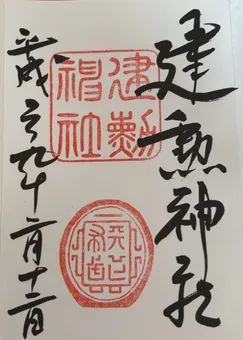 建勲神社
建勲
神社
平成二九年二月十二日